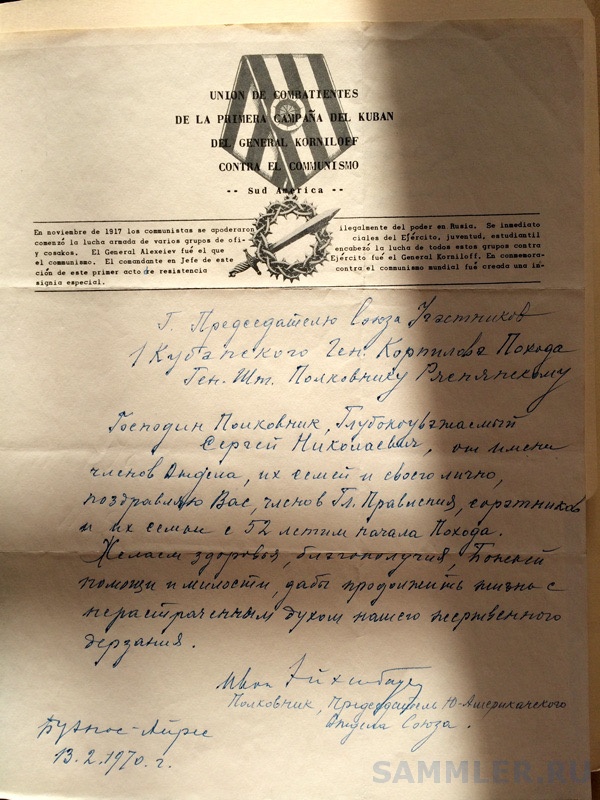 UNION DE COMBATIENTES
DE LA PRIMERA CAMPAÑA DEL KUBAN
DEL GENERAL KORNILOFF
CONTRA EL COMMUNISMO
-- Sud America --
En noviembre de 1917 los communistas se apoderaron
comenzó la lucha armada de varios grupos de ofi-
y cosakos. El General Alexeiev fué el que
el communismo. El comandante en Jefe de este
ción de este primer acto de resistencia
signia especial.
ilegalmente del poder en Rusia. Se inmediato
ciales del Ejército, juventud, estudiantil
encabezó la lucha de todos estos grupos contra
Ejército fué el General Korniloff. En conmemora-
contra el communismo mundial fué creada una in-
Г. Председателю Союза Участников
1 Кубанского Ген. Корнилова Похода
Ген. Шт. Полковнику Ряснянскому
Господин Полковник, Глубокоуважаемый
Сергей Николаевич, от имени
членов Отдела, их семей и своего лично,
поздравляю Вас, членов Гл. Правления, соратников
и их семьи с 52 летим начала Похода.
Желаем здоровья, благополучия, Божьей
помощи и милости, дабы продолжить жизнь с
нерастраченным духом нашего жертвенного
дерзания.
Полковник, Председатель Ю-Американского
Отдела Союза.
Буэнос-Айрес
13.2.1970.г.
SAMMLER.RU